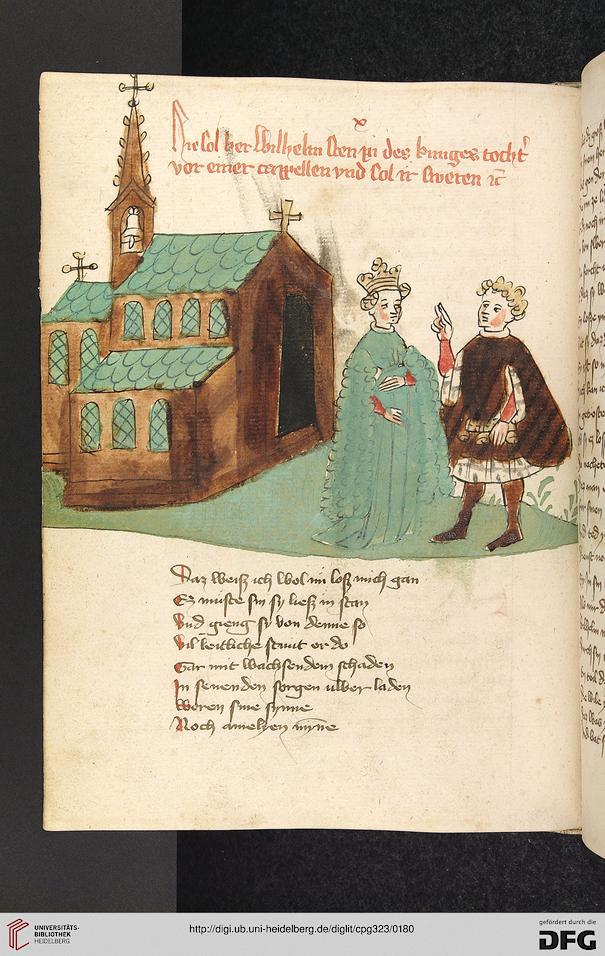 Hie sol her wilhelm sten zu des kunges tocht
vor einer cappellen vnd sol ir
Daz weisz ich wol nu losz mich gan
Ez muste sin sy liesz in stan
Vnd gieng sy von denne so
Vil leitliche stunt er do
Gar mit wachsendem schaden
In senenden sorgen vber laden
Woren sine synne
Noch amelyen mynne
UNIVERSITÄTS-
BIBLIOTHEK
HEIDELBERG
http://digi.ub.uni-heidelberg.de/diglit/cpg323/0180
gefördert durch die
DFG